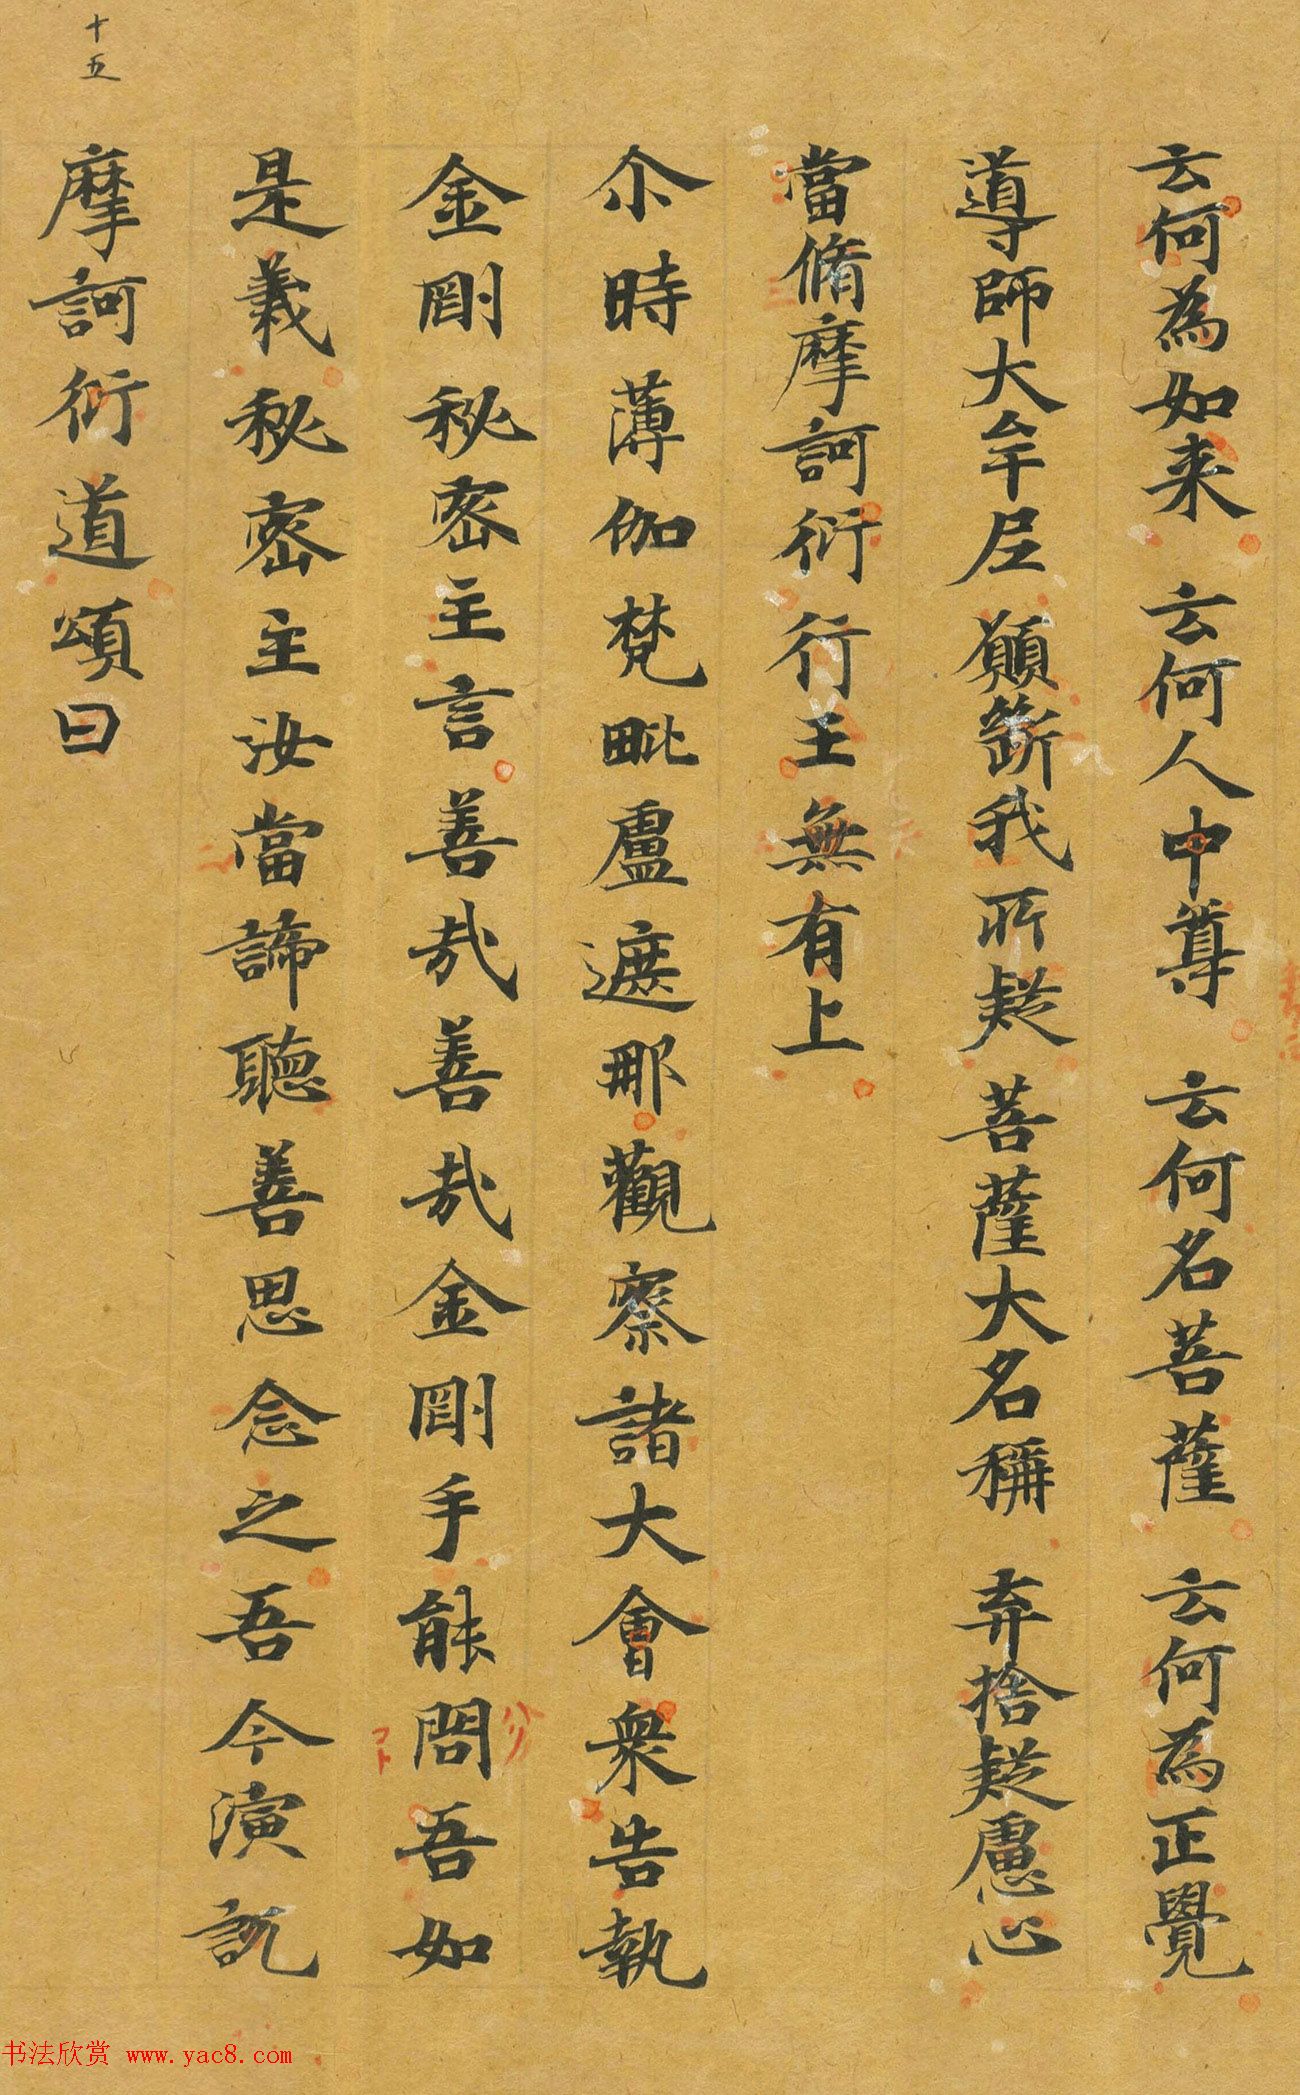 云何為如来　云何人中尊　云何名菩薩　云何為正覺
導師大牟尼　願斷我所疑　菩薩大名稱　弃捨疑慮心
當脩摩訶衍　行王無有上
尒時薄伽梵毗盧遮那觀察諸大會衆告執
金剛秘密主言善哉善哉金剛手能問吾如
是義秘密主汝當諦聽善思念之吾今演說
摩訶衍道頌曰
十五
书法欣赏 www.yac8.com